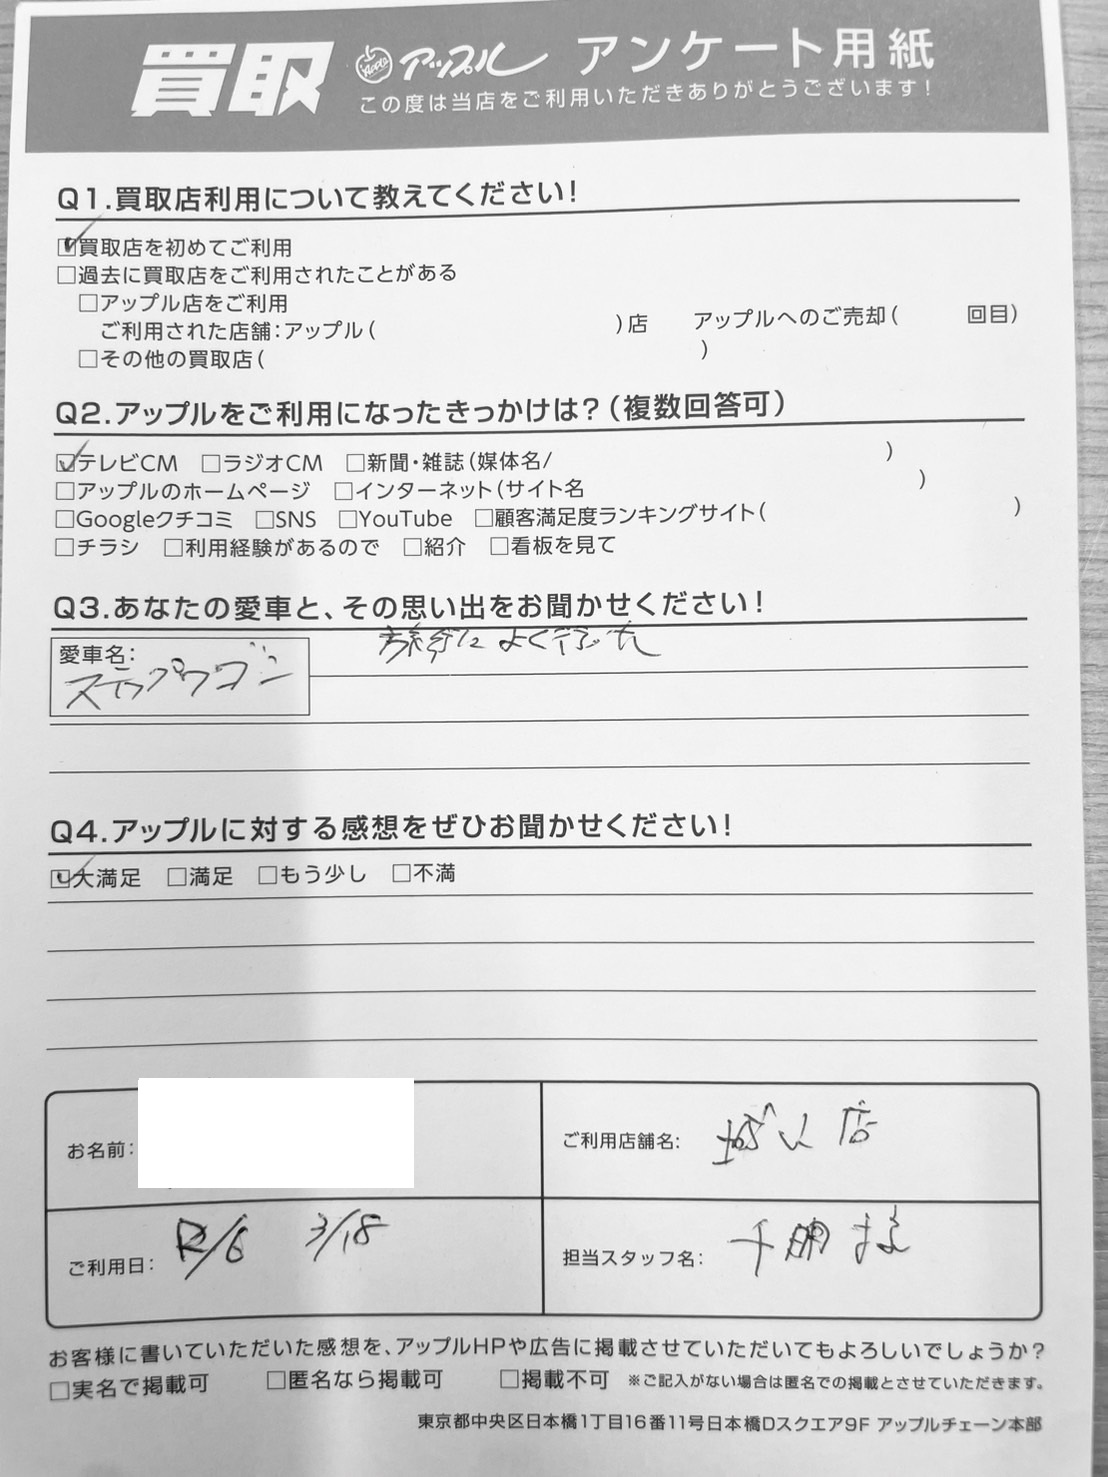 買取 Apple アップル アンケート用紙
この度は当店をご利用いただきありがとうございます!
Q1.買取店利用について教えてください!
☑買取店を初めてご利用
□過去に買取店をご利用されたことがある
□アップル店をご利用
ご利用された店舗:アップル( )店 アップルへのご売却( 回目)
□その他の買取店( )
Q2.アップルをご利用になったきっかけは?(複数回答可)
☑テレビCM □ラジオCM □新聞・雑誌(媒体名/ )
□アップルのホームページ □インターネット(サイト名 )
□Googleクチコミ □SNS □YouTube □顧客満足度ランキングサイト( )
□チラシ □利用経験があるので □紹介 □看板を見て
Q3.あなたの愛車と、その思い出をお聞かせください!
旅行に よく行った
愛車名:
ステップワゴン
Q4.アップルに対する感想をぜひお聞かせください!
☑大満足 □満足 □もう少し □不満
お名前:
ご利用店舗名: 店
ご利用日: R/6 3/18
担当スタッフ名: 様
お客様に書いていただいた感想を、アップルHPや広告に掲載させていただいてもよろしいでしょうか?
□実名で掲載可 □匿名なら掲載可 □掲載不可 ※ご記入がない場合は匿名での掲載とさせていただきます。
東京都中央区日本橋1丁目16番11号日本橋Dスクエア9F アップルチェーン本部